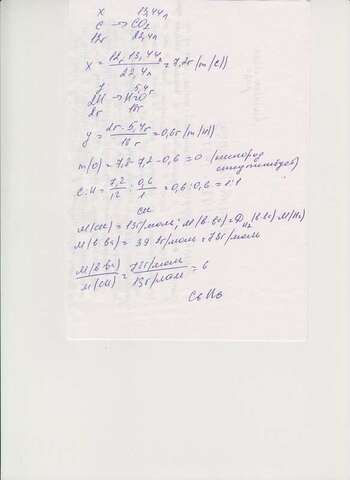 x 13,44л
C → CO2
12г 22,4л
x = 12г · 13,44л / 22,4л = 7,2г (m(C))
y 5,4г
2H → H2O
2г 18г
y = 2г · 5,4г / 18г = 0,6г (m(H))
m(O) = 7,8 - 7,2 - 0,6 = 0 (кислород отсутствует)
C:H = 7,2/12 : 0,6/1 = 0,6:0,6 = 1:1
CH
M(CH) = 13г/моль; M(в-ва) = DH2(в-ва) M(H2)
M(в-ва) = 39 · 2г/моль = 78г/моль
M(в-ва)/M(CH) = 78г/моль / 13г/моль = 6
C6H6